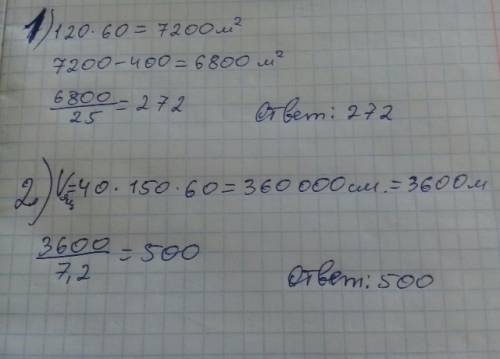 1) 120·60 = 7200 м²
7200 – 400 = 6800 м²
6800/25 = 272 Ответ: 272
2) Vящ = 40·150·60 = 360 000 см. = 3600 м
3600/7,2 = 500 Ответ: 500